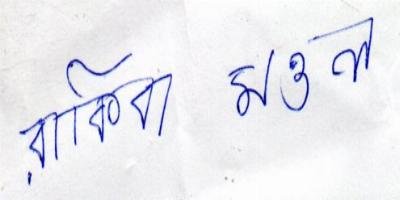 রাকিবা মণ্ডল